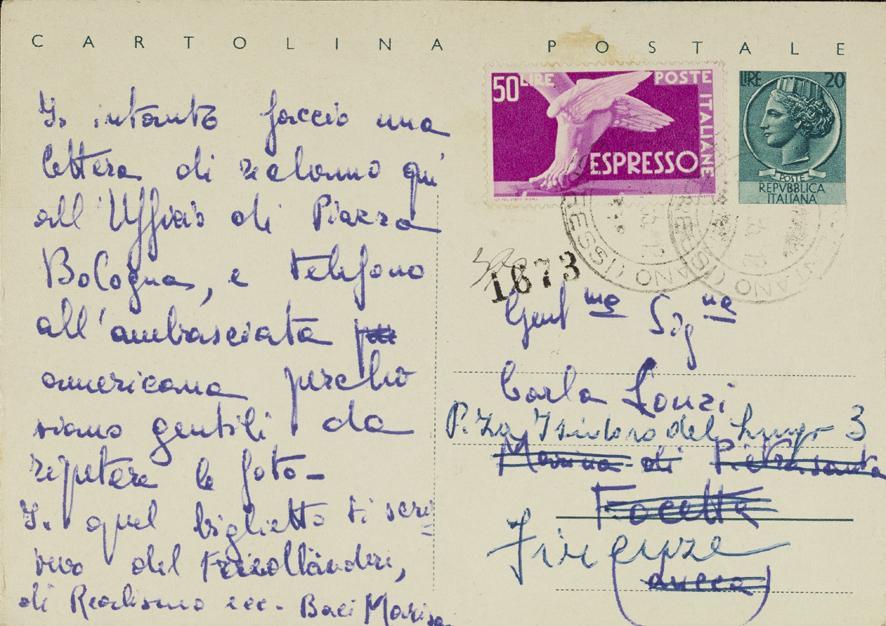 CARTOLINA POSTALE
50 LIRE POSTE ITALIANE
ESPRESSO
LIRE 20
POSTE
REPVBBLICA
ITALIANA
1673
Io intanto faccio una
lettera di reclamo qui
all'Ufficio di Piazza
Bologna, e telefono
all'ambasciata
americana perché
siano gentili da
ripetere le foto-
In quel biglietto ti scri
vevo del
di Realismo ecc- Baci Marisa
Gent ma Sig na
Carla Lonzi
P.za Isidoro del Lungo 3
Marina di Pietrasanta
Focette
Firenze
Lucca